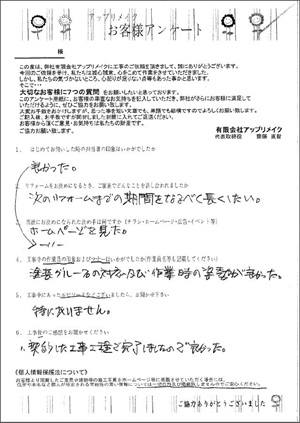 アップリメイク
お客様アンケート
様
この度は、弊社有限会社アップリメイクに工事のご依頼を頂きまして、誠にありがとうございます。
今回のご依頼を受け、私たちは誠心誠意、心をこめて作業をさせていただきました。
しかし、私たちの気づかないところ、心配りが足りない点等もあった事かと思います。
そこで…
大切なお客様に7つの質問 をお願いしたいと思っております。
このアンケート用紙に、お客様の率直なお気持ちを記入していただき、弊社がさらにお客様に満足して
いただけるように、ぜひご協力をお願い致します。
ご協力お願い致します。
有限会社アップリメイク
代表取締役 齋藤
1. はじめてお伺いした時の担当者の印象はいかがでしたか
良かった。
2. リフォームをお決めになるとき、ご家族でどんなことを話し合われましたか
次のリフォームまでの期間をなるべく長くしたい。
3. 当社にお決めになられた決め手は何ですか(チラシ・ホームページ・広告・イベント等)
ホームページを見た。
4. 工事中の作業員の印象およびマナーはいかがでしたか(作業員名等も記載してください)
作業時の 良かった。
5. 工事中にあったエピソードなどございましたら、お聞かせ下さい
特にありません。
6. 工事後のご感想をお聞かせください
契約した工事工程で完了しましたので良かった。
《個人情報保護法について》
ご協力ありがとうございました